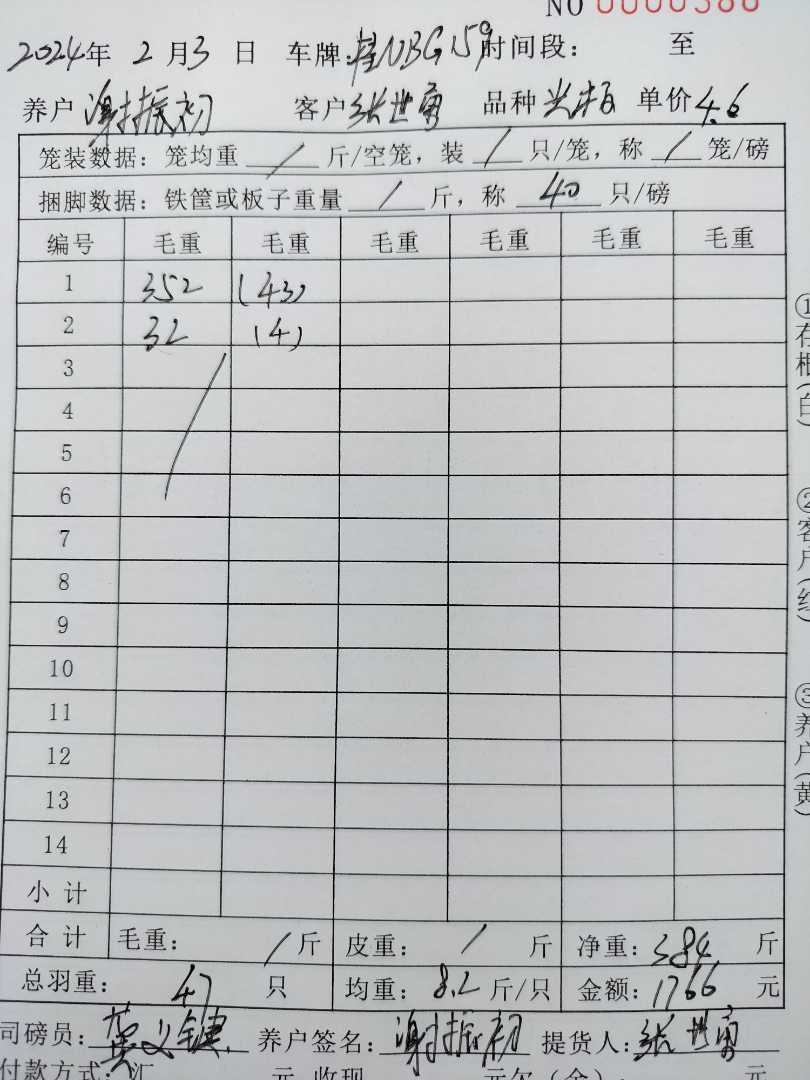 NO 0000386
2024年 2月3日 车牌:桂NBG159 时间段: 至
养户 谢振初 客户 张世勇 品种 单价 4.6
笼装数据:笼均重 / 斤/空笼,装 / 只/笼,称 / 笼/磅
捆脚数据:铁筐或板子重量 / 斤,称 40 只/磅
编号 毛重 毛重 毛重 毛重 毛重 毛重
1 352 (43)
2 32 (4)
3
4
5
6
7
8
9
10
11
12
13
14
小计
合计 毛重: / 斤 皮重: / 斤 净重: 384 斤
总羽重: 47 只 均重: 8.2 斤/只 金额: 1766 元
司磅员: 养户签名: 谢振初 提货人: 张世勇
付款方式:汇 元 收现 元欠(余): 元
①存根(白)
②客户(红)
③养户(黄)